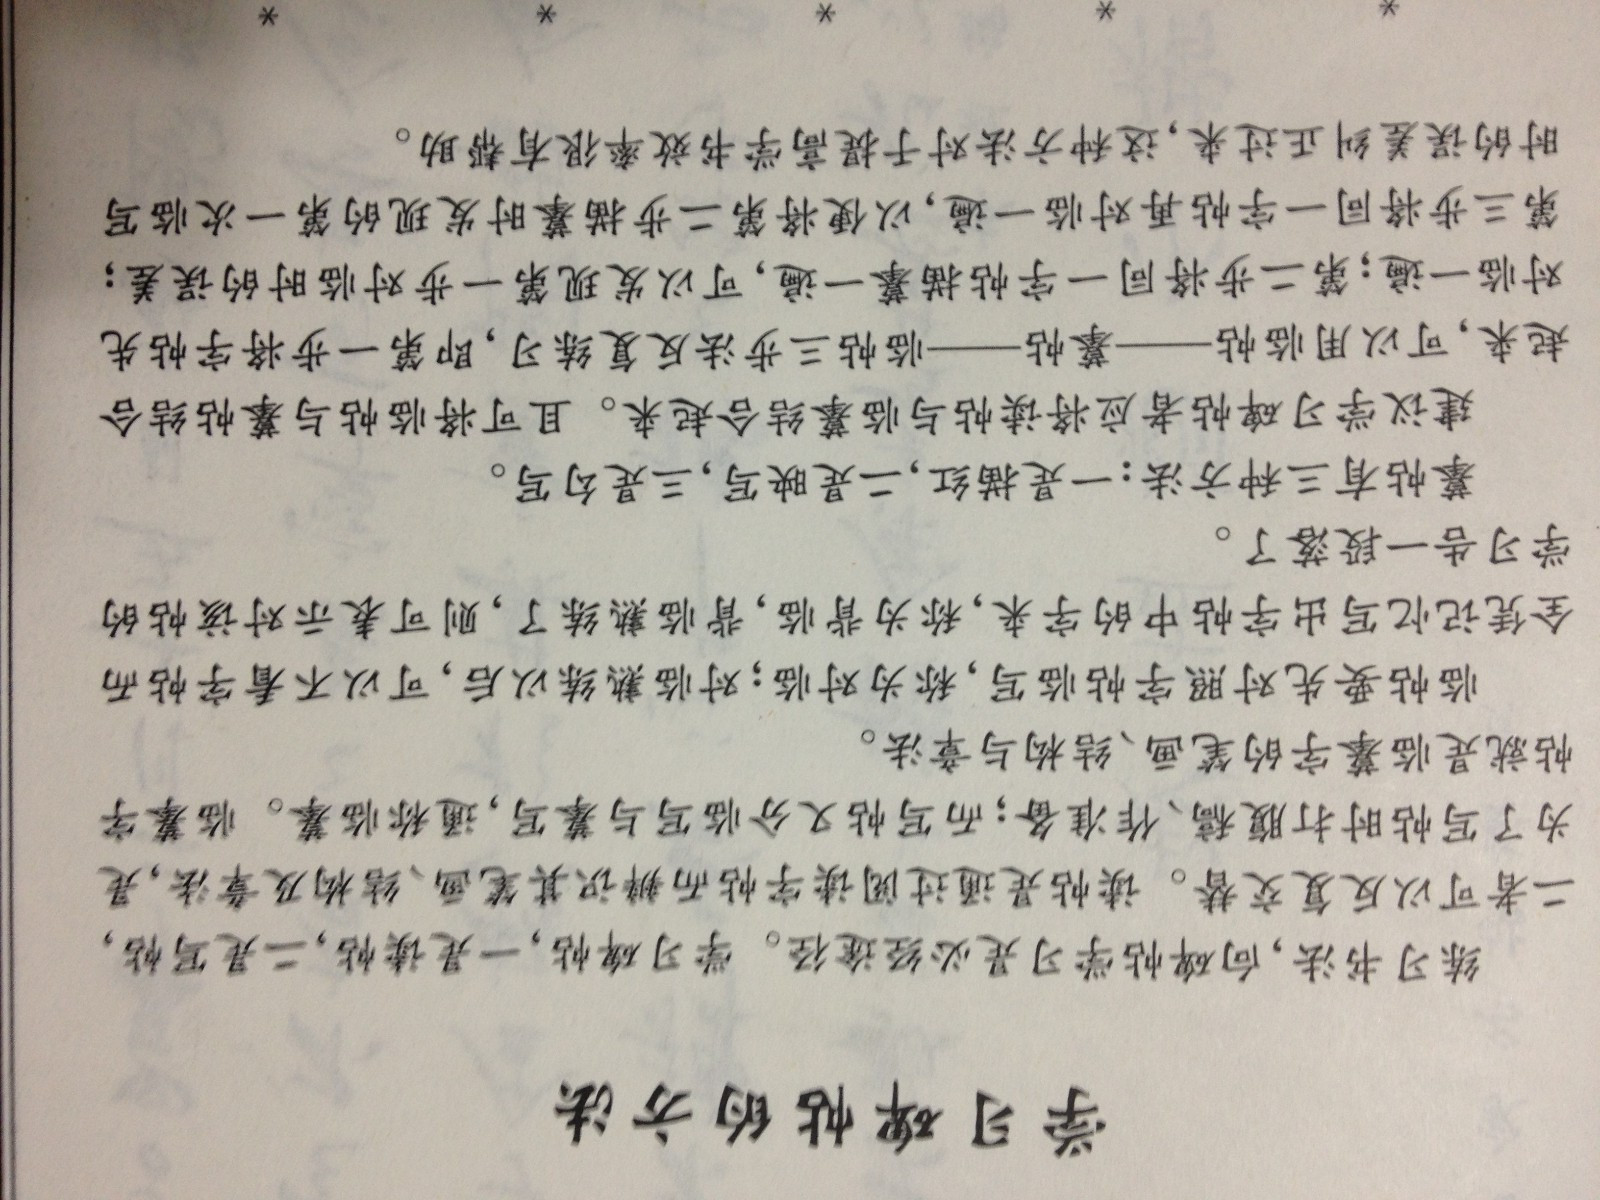 学习碑帖的方法
练习书法,向碑帖学习是必经途径。学习碑帖,一是读帖,二是写帖,
二者可以反复交替。读帖是通过阅读字帖而辨识其笔画、结构及章法,是
为了写帖时打腹稿、作准备;而写帖又分临写与摹写,通称临摹。临摹字
帖就是临摹字的笔画、结构与章法。
临帖要先对照字帖临写,称为对临;对临熟练以后,可以不看字帖而
全凭记忆写出字帖中的字来,称为背临,背临熟练了,则可表示对该帖的
学习告一段落了。
摹帖有三种方法:一是描红,二是映写,三是勾写。
建议学习碑帖者应将读帖与临摹结合起来。且可将临帖与摹帖结合
起来,可以用临帖——摹帖——临帖三步法反复练习,即第一步将字帖先
对临一遍;第二步将同一字帖描摹一遍,可以发现第一步对临时的误差;
第三步将同一字帖再对临一遍,以便将第二步描摹时发现的第一次临写
时的误差纠正过来,这种方法对于提高学书效率很有帮助。
* * * * *